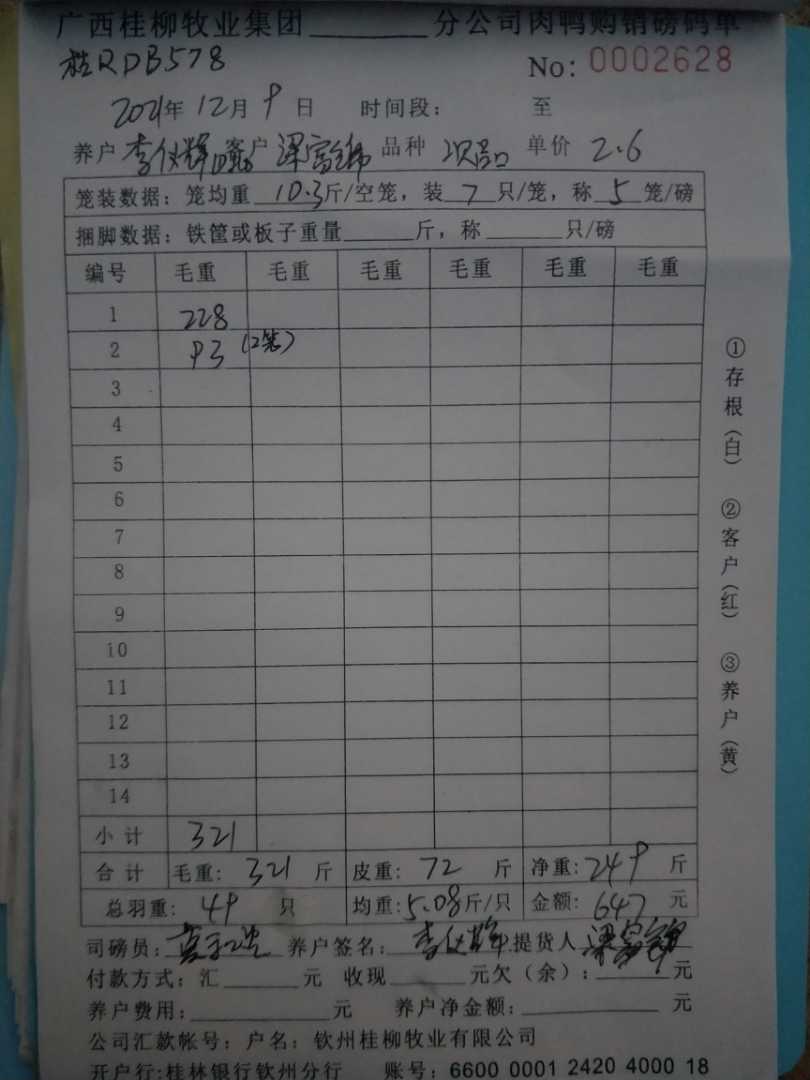 广西桂柳牧业集团________分公司肉鸭购销磅码单
桂RDB578
No: 0002628
2021年 12月 9 日 时间段: 至
养户 李仪辉 客户 梁富锦 品种 次品 单价 2.6
笼装数据: 笼均重 10.3斤/空笼, 装 7 只/笼, 称 5 笼/磅
捆脚数据: 铁筐或板子重量______斤, 称______只/磅
编号 毛重 毛重 毛重 毛重 毛重 毛重
1 228
2 93 (2笼)
3
4
5
6
7
8
9
10
11
12
13
14
小计 321
合计 毛重: 321 斤 皮重: 72 斤 净重: 249 斤
总羽重: 49 只 均重: 5.08斤/只 金额: 647 元
司磅员: 养户签名: 李仪辉 提货人 梁富锦
付款方式: 汇______元 收现______元欠(余): ______元
养户费用: ____________元 养户净金额: ____________元
公司汇款帐号: 户名: 钦州桂柳牧业有限公司
开户行: 桂林银行钦州分行 账号: 6600 0001 2420 4000 18
①存根(白) ②客户(红) ③养户(黄)